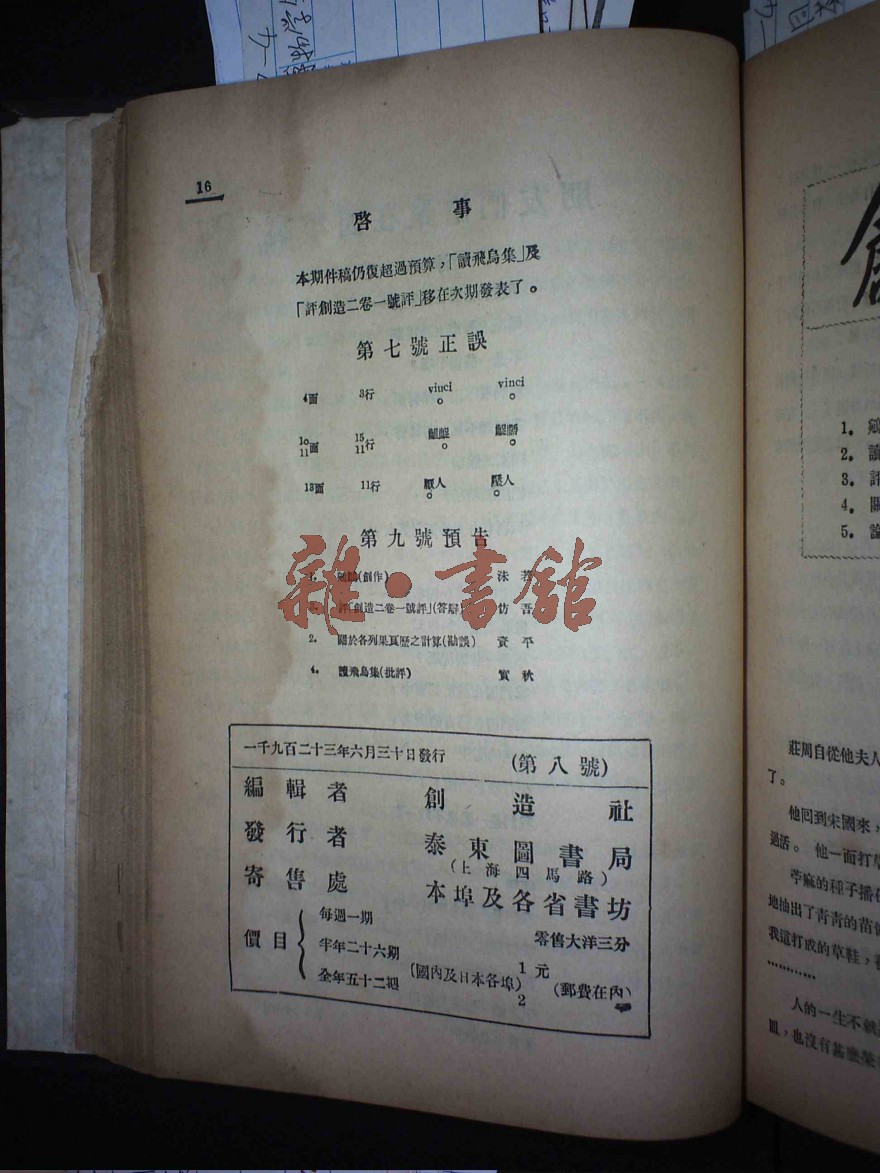 16
啓事
本期件稿仍復超過預算，「讀飛鳥集」及
「評創造二卷一號評」移在次期發表了。
第七號正誤
4面 3行 viuci vinci
10 11面 15 11行 齟齪
13面 11行 原人 壓人
第九號預告
1. (創作) 沫若
評「創造二卷一號評」(答辯) 仿吾
2. 關於各列果真歷之計算(勘誤) 資平
4. 讀飛鳥集(批評) 實秋
雜·書舘
一千九百二十三年六月三十日發行 (第八號)
編輯者 創造社
發行者 泰東圖書局
(上海四馬路)
寄售處 本埠及各省書坊
價目
每週一期 零售大洋三分
半年二十六期 1元
全年五十二期 (國內及日本各埠) 2 (郵費在內)
創
1.
2. 讀
3. 評
4. 關
5. 論
莊周自從他夫人
了。
他回到宋國來，
過活。 他一面打草
苧麻的種子播在
地抽出了靑靑的苗
我這打成的草鞋，
…………
人的一生不就
皿，也沒有甚麽榮